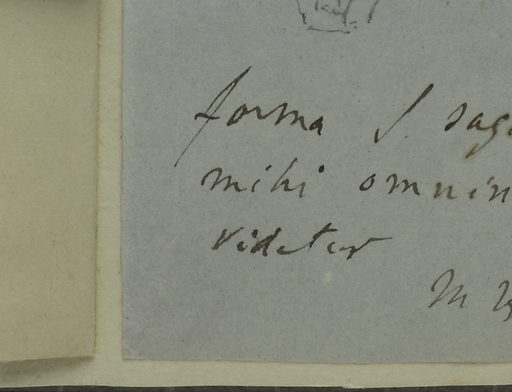 forma S. sag
mihi omnin
videtur
M